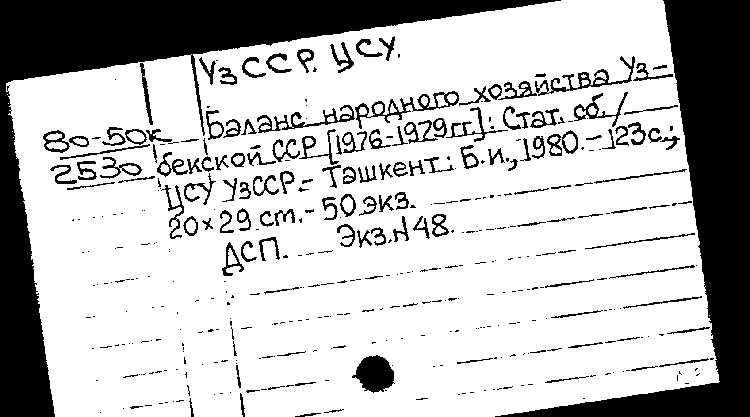 УзССР. ЦСУ.
Баланс народного хозяйства Уз-
80-50к бекской ССР [1976-1979 гг.]: Стат. сб. /
2530 ЦСУ УзССР. - Ташкент: Б.и., 1980. - 123 с.;
20×29 ст. - 50 экз.
ДСП. Экз.N 48.